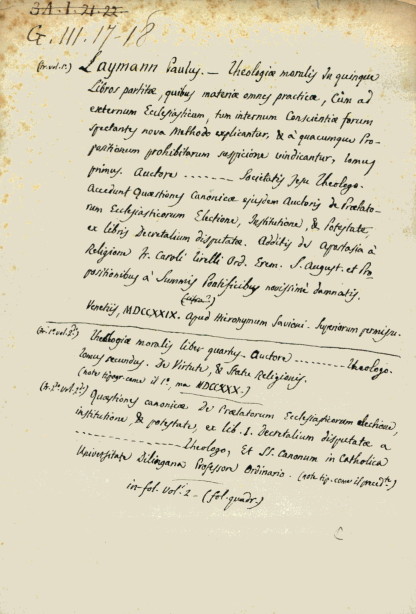 3A.I.21.22
G.III.17-18
Laymann Paulus. — Theologiæ moralis in quinque
Libros partitæ, quibus materiæ omnes practicæ, Cùm ad
externum Ecclesiasticum, tum internum Conscientiæ forum
Spectantes nova Methodo explicantur, & à quacumque Pro-
positionum prohibitarum suspicione vindicantur, tomus
primus. Auctore -------- Societatis Jesu Theologo.
Accedunt Quæstiones Canonicæ ejusdem Auctoris de Prælato-
rum Ecclesiasticorum Electione, Institutione, & Potestate,
ex libris Decretalium disputatæ. Additis de Apostasia à
Religione Fr. Caroli Tirelli Ord. Erem. S. August. et Pro-
positionibus à Summis Pontificibus novissimè damnatis.
Venetiis, MDCCXXIX. Apud Hieronymum Savioni. Superiorum permissu.
Theologiæ moralis liber quartus. Auctore -------- Theologo.
tomus secundus. de Virtute, & Statu Religionis.
(note tipogr. come il 1º, ma MDCCXXX.)
Quæstiones canonicæ de Prælatorum Ecclesiasticorum electione,
institutione, & potestate, ex lib. I. Decretalium disputatæ a
-------- Theologo, Et SS. Canonum in Catholica
Universitate Dilingana Professore Ordinario. (note tip. come il preced.te)
in fol. vol. 2 – (fol. quadr.)